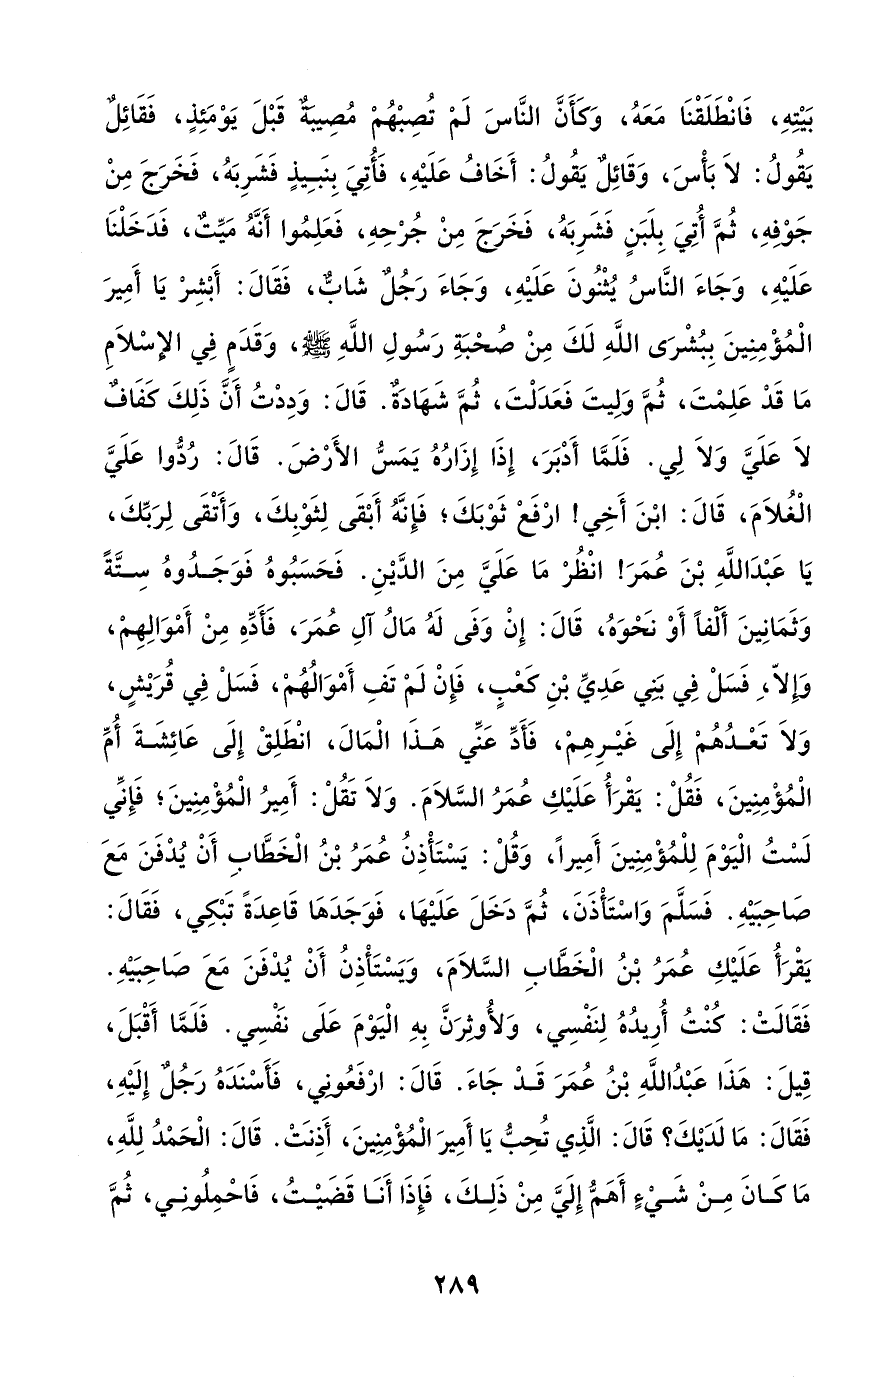 بَيْتِهِ، فَانْطَلَقْنَا مَعَهُ، وَكَأَنَّ النَّاسَ لَمْ تُصِبْهُمْ مُصِيبَةٌ قَبْلَ يَوْمَئِذٍ، فَقَائِلٌ
يَقُولُ: لاَ بَأْسَ، وَقَائِلٌ يَقُولُ: أَخَافُ عَلَيْهِ، فَأُتِيَ بِنَبِيذٍ فَشَرِبَهُ، فَخَرَجَ مِنْ
جَوْفِهِ، ثُمَّ أُتِيَ بِلَبَنٍ فَشَرِبَهُ، فَخَرَجَ مِنْ جُرْحِهِ، فَعَلِمُوا أَنَّهُ مَيِّتٌ، فَدَخَلْنَا
عَلَيْهِ، وَجَاءَ النَّاسُ يُثْنُونَ عَلَيْهِ، وَجَاءَ رَجُلٌ شَابٌّ، فَقَالَ: أَبْشِرْ يَا أَمِيرَ
الْمُؤْمِنِينَ بِبُشْرَى اللَّهِ لَكَ مِنْ صُحْبَةِ رَسُولِ اللَّهِ ﷺ، وَقَدَمٍ فِي الإِسْلاَمِ
مَا قَدْ عَلِمْتَ، ثُمَّ وَلِيتَ فَعَدَلْتَ، ثُمَّ شَهَادَةٌ. قَالَ: وَدِدْتُ أَنَّ ذَلِكَ كَفَافٌ
لاَ عَلَيَّ وَلاَ لِي. فَلَمَّا أَدْبَرَ، إِذَا إِزَارُهُ يَمَسُّ الأَرْضَ. قَالَ: رُدُّوا عَلَيَّ
الْغُلاَمَ، قَالَ: ابْنَ أَخِي! ارْفَعْ ثَوْبَكَ؛ فَإِنَّهُ أَبْقَى لِثَوْبِكَ، وَأَتْقَى لِرَبِّكَ،
يَا عَبْدَاللَّهِ بْنَ عُمَرَ! انْظُرْ مَا عَلَيَّ مِنَ الدَّيْنِ. فَحَسَبُوهُ فَوَجَدُوهُ سِتَّةً
وَثَمَانِينَ أَلْفاً أَوْ نَحْوَهُ، قَالَ: إِنْ وَفَى لَهُ مَالُ آلِ عُمَرَ، فَأَدِّهِ مِنْ أَمْوَالِهِمْ،
وَإِلاَّ، فَسَلْ فِي بَنِي عَدِيِّ بْنِ كَعْبٍ، فَإِنْ لَمْ تَفِ أَمْوَالُهُمْ، فَسَلْ فِي قُرَيْشٍ،
وَلاَ تَعْدُهُمْ إِلَى غَيْرِهِمْ، فَأَدِّ عَنِّي هَذَا الْمَالَ، انْطَلِقْ إِلَى عَائِشَةَ أُمِّ
الْمُؤْمِنِينَ، فَقُلْ: يَقْرَأُ عَلَيْكِ عُمَرُ السَّلاَمَ. وَلاَ تَقُلْ: أَمِيرُ الْمُؤْمِنِينَ؛ فَإِنِّي
لَسْتُ الْيَوْمَ لِلْمُؤْمِنِينَ أَمِيراً، وَقُلْ: يَسْتَأْذِنُ عُمَرُ بْنُ الْخَطَّابِ أَنْ يُدْفَنَ مَعَ
صَاحِبَيْهِ. فَسَلَّمَ وَاسْتَأْذَنَ، ثُمَّ دَخَلَ عَلَيْهَا، فَوَجَدَهَا قَاعِدَةً تَبْكِي، فَقَالَ:
يَقْرَأُ عَلَيْكِ عُمَرُ بْنُ الْخَطَّابِ السَّلاَمَ، وَيَسْتَأْذِنُ أَنْ يُدْفَنَ مَعَ صَاحِبَيْهِ.
فَقَالَتْ: كُنْتُ أُرِيدُهُ لِنَفْسِي، وَلأُوثِرَنَّ بِهِ الْيَوْمَ عَلَى نَفْسِي. فَلَمَّا أَقْبَلَ،
قِيلَ: هَذَا عَبْدُاللَّهِ بْنُ عُمَرَ قَدْ جَاءَ. قَالَ: ارْفَعُونِي، فَأَسْنَدَهُ رَجُلٌ إِلَيْهِ،
فَقَالَ: مَا لَدَيْكَ؟ قَالَ: الَّذِي تُحِبُّ يَا أَمِيرَ الْمُؤْمِنِينَ، أَذِنَتْ. قَالَ: الْحَمْدُ لِلَّهِ،
مَا كَانَ مِنْ شَيْءٍ أَهَمُّ إِلَيَّ مِنْ ذَلِكَ، فَإِذَا أَنَا قَضَيْتُ، فَاحْمِلُونِي، ثُمَّ
٢٨٩